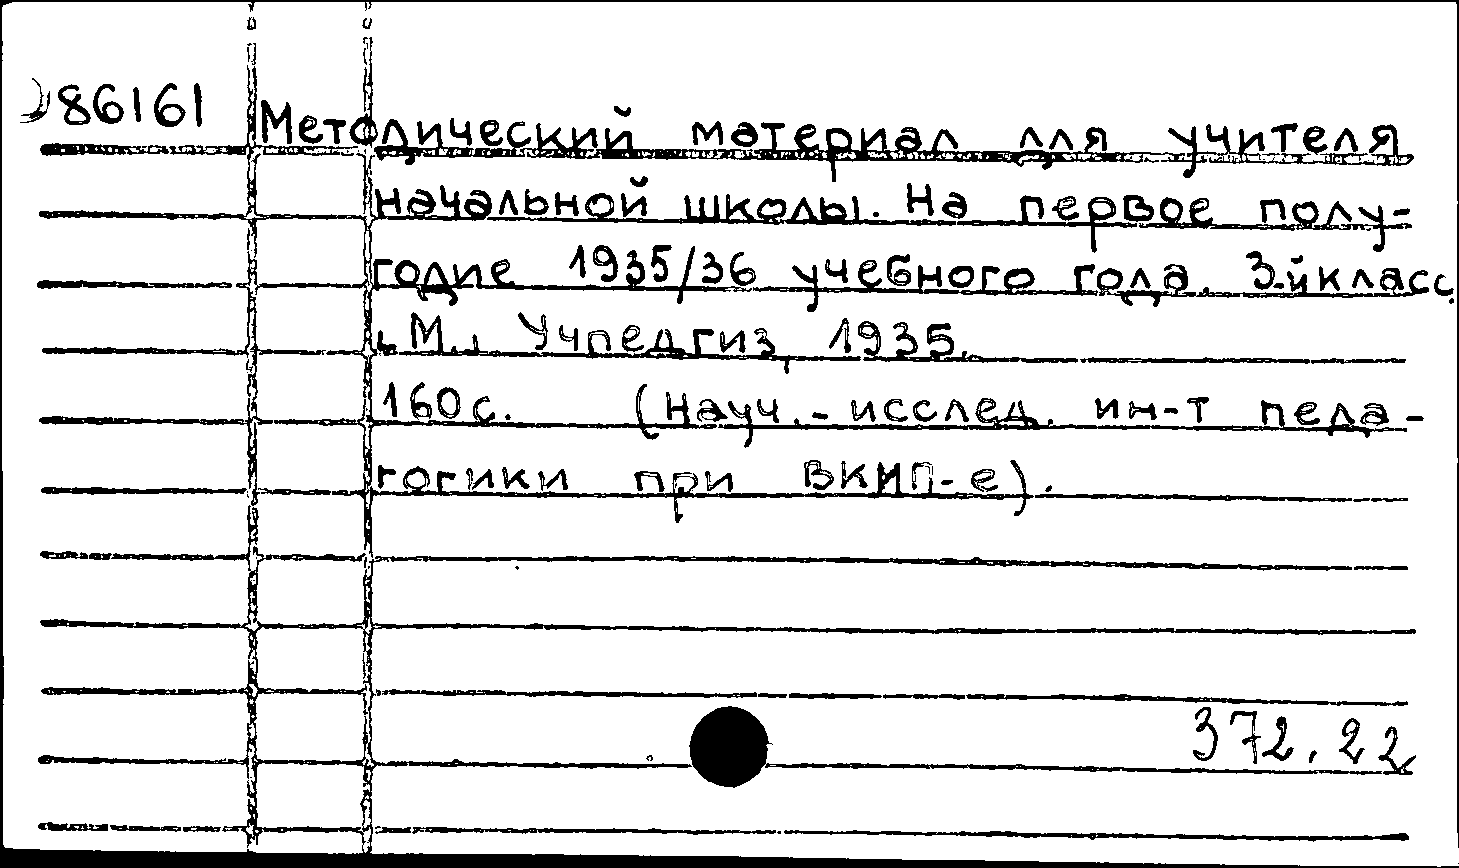 86161 Методический материал для учителя
начальной школы. На первое полу-
годие 1935/36 учебного года. 3-й класс.
М., Учпедгиз, 1935.
160 с. (Науч.-исслед. ин-т педа-
гогики при ВКИП-е).
372.22